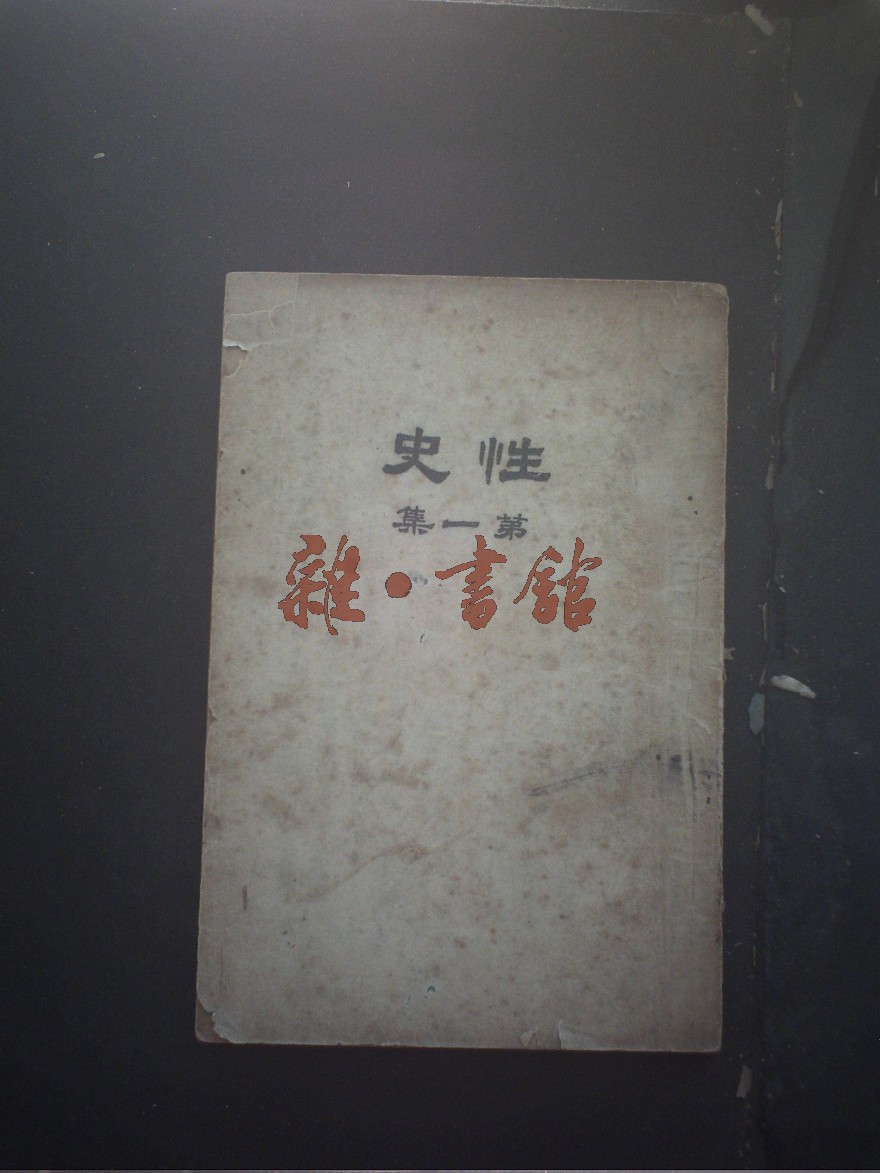 性史
第一集
雜·書館